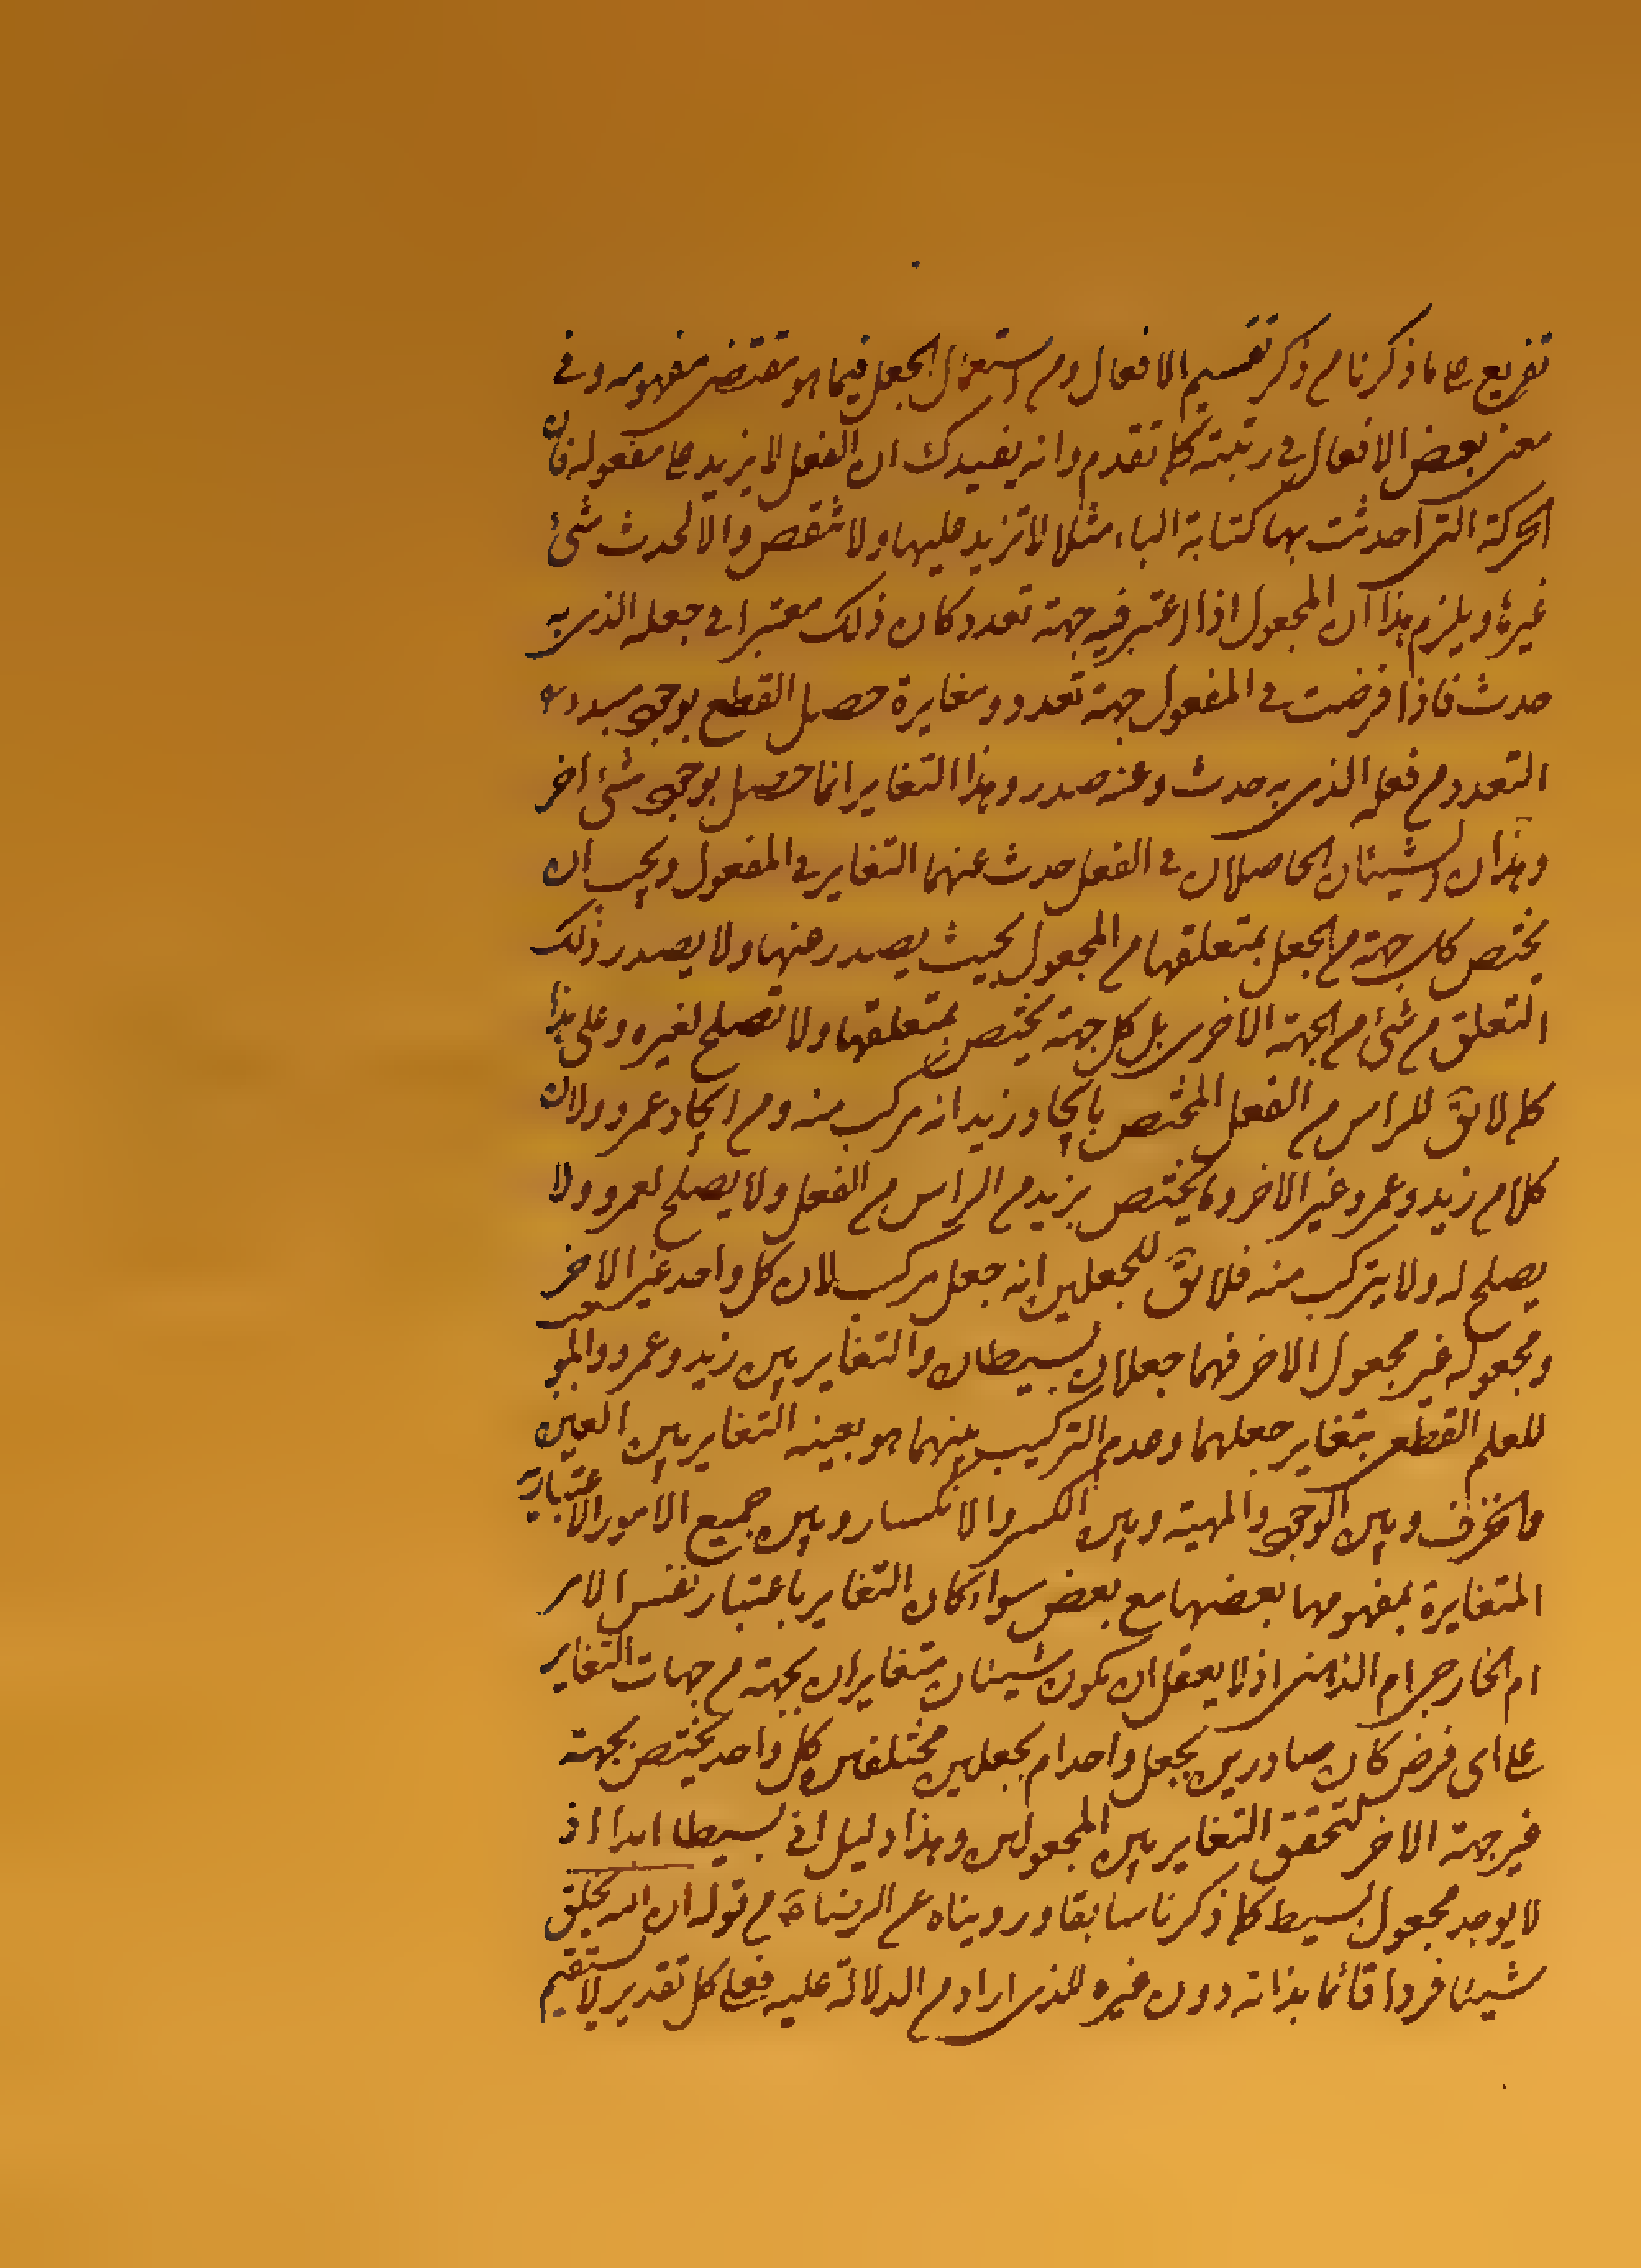 تفريع على ما ذكرنا من ذكر تقسيم الافعال ومن استعمال الجعل فيما هو مقتضى مفهومه وفى
معنى بعض الافعال فى رتبته كما تقدم وانه يفيدك ان الفعل لا يزيد على مفعوله فان
الحركة التى احدثت بها كتابة الباء مثلا لا تزيد عليها ولا تنقص والا لحدث شئ
غيرها ويلزم هذا ان المجعول اذا اعتبر فيه جهة تعدد كان ذلك معتبرا فى جعله الذى به
حدث فاذا فرضت فى المفعول جهة تعدد ومغايرة حصل القطع بوجود
التعدد من فعله الذى به حدث وعنه صدر وهذا التغاير انما حصل بوجود شئ اخر
وهذان الشيئان الحاصلان فى الفعل حدث عنهما التغاير فى المفعول ويجب ان
يختص كل جهة من الجعل بمتعلقها من المجعول بحيث يصدر عنها ولا يصدر ذلك
التعلق من شئ من الجهة الاخرى بل كل جهة يختص بمتعلقها ولا تصلح لغيره وعلى هذا
كما لا يق للراس من الفعل المختص بايجاد زيد انه مركب منه ومن ايجاد عمرو ولان
كلا من زيد وعمرو غير الاخر وما يختص بزيد من الراس من الفعل ولا يصلح لعمرو ولا
يصلح له ولا يتركب منه فلا يق للجعلين انه جعل مركب لان كل واحد غير الاخر
ومجعوله غير مجعول الاخر فهما جعلان بسيطان والتغاير بين زيد وعمرو
للعلم القطعى بتغاير جعلهما وعدم التركيب منهما هو بعينه التغاير بين العين
وبين الوجود والمهية وبين الكسر والانكسار وبين جميع الامور الاعتبارية
المتغايرة بمفهومها بعضها مع بعض سواء كان التغاير باعتبار نفس الامر
ام الخارجى ام الذهنى اذ لا يعقل ان يكون شيئان متغايران بجهة من جهات التغاير
على اى فرض كان صادرين بجعل واحد ام بجعلين مختلفين كل واحد يختص بجهة
غير جهة الاخر لتحقق التغاير بين المجعولين وهذا دليل بسيطا ابدا اذ
لا يوجد مجعول بسيط كما ذكرنا سابقا ورويناه عن الرضا ع من قوله ان الله لم يخلق
شيئا فردا قائما بذاته دون غيره للذى اراد من الدلالة عليه فعلى كل تقدير لا يستقيم